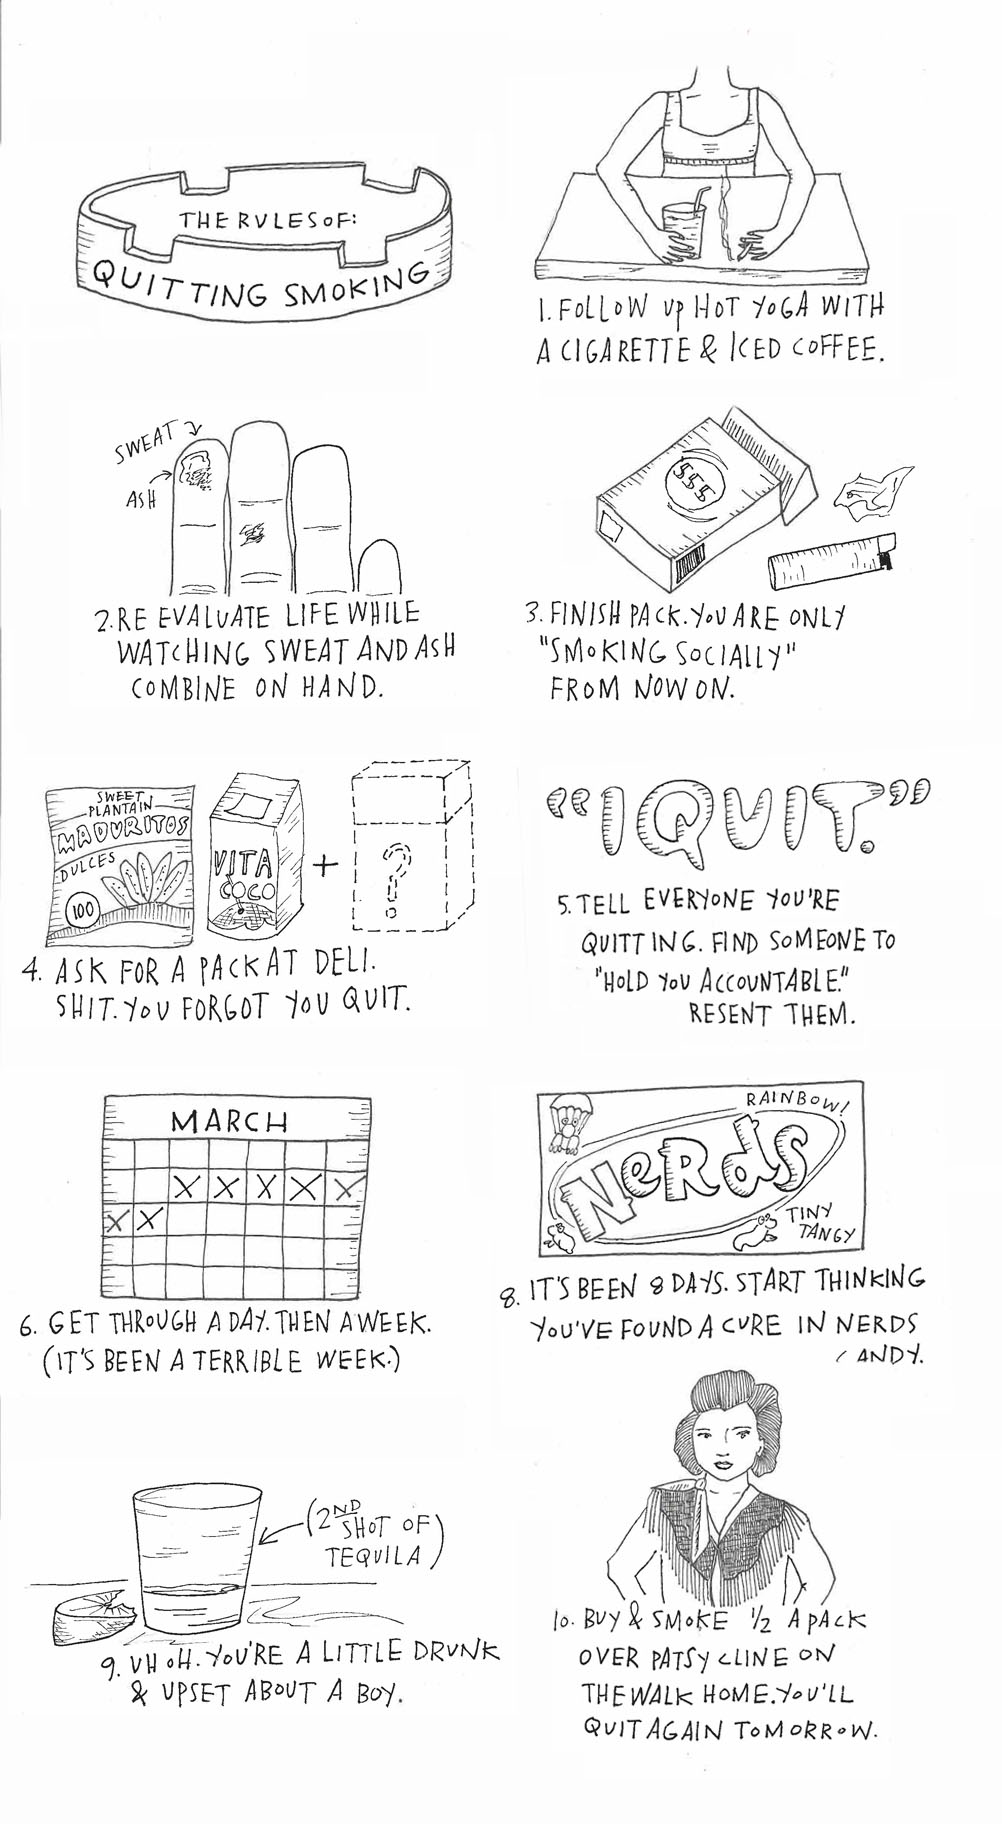 THE RULES OF:
QUITTING SMOKING
1. FOLLOW UP HOT YOGA WITH
A CIGARETTE & ICED COFFEE.
SWEAT
ASH
2. RE EVALUATE LIFE WHILE
WATCHING SWEAT AND ASH
COMBINE ON HAND.
555
3. FINISH PACK. YOU ARE ONLY
"SMOKING SOCIALLY"
FROM NOW ON.
SWEET
PLANTAIN
MADURITOS
DULCES
100
VITA
COCO
+
?
4. ASK FOR A PACK AT DELI.
SHIT. YOU FORGOT YOU QUIT.
"I QUIT."
5. TELL EVERYONE YOU'RE
QUITTING. FIND SOMEONE TO
"HOLD YOU ACCOUNTABLE."
RESENT THEM.
MARCH
X X X X X
X X
6. GET THROUGH A DAY. THEN A WEEK.
(IT'S BEEN A TERRIBLE WEEK.)
RAINBOW!
NeRds
TINY
TANGY
8. IT'S BEEN 8 DAYS. START THINKING
YOU'VE FOUND A CURE IN NERDS
CANDY.
(2ND
SHOT OF
TEQUILA)
9. UH OH. YOU'RE A LITTLE DRUNK
& UPSET ABOUT A BOY.
10. BUY & SMOKE 1/2 A PACK
OVER PATSY CLINE ON
THE WALK HOME. YOU'LL
QUIT AGAIN TOMORROW.